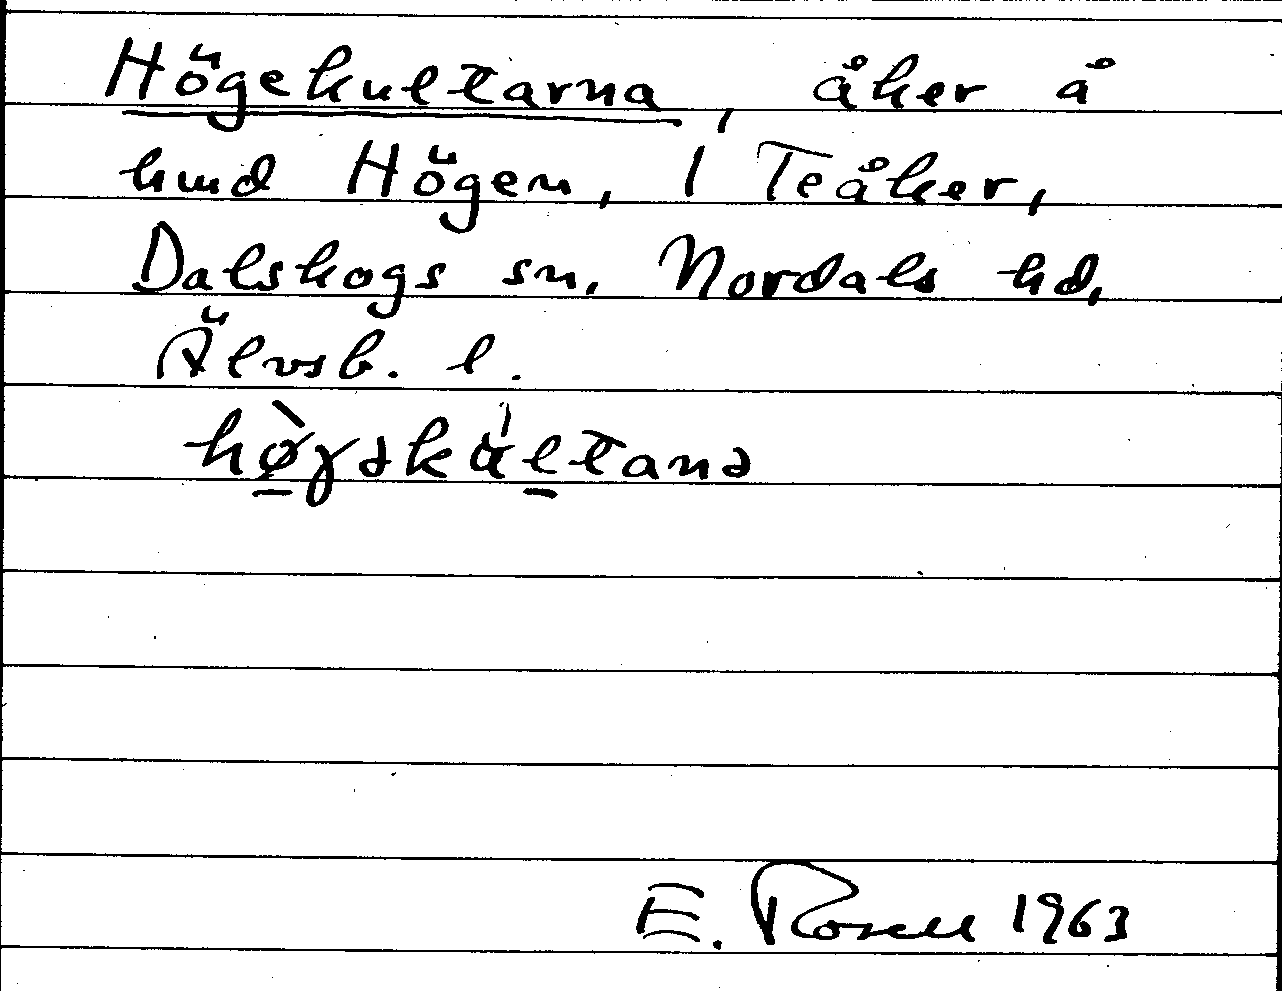 Högekultarna, åker å
hmd Högen, 1 Teåker,
Dalskogs sn. Nordals hd,
Älvsb. l.
hø̀γəkúltanə
E. Rosell 1963